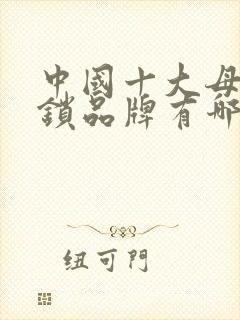 中國十大母
鎖品牌有哪
纽可門